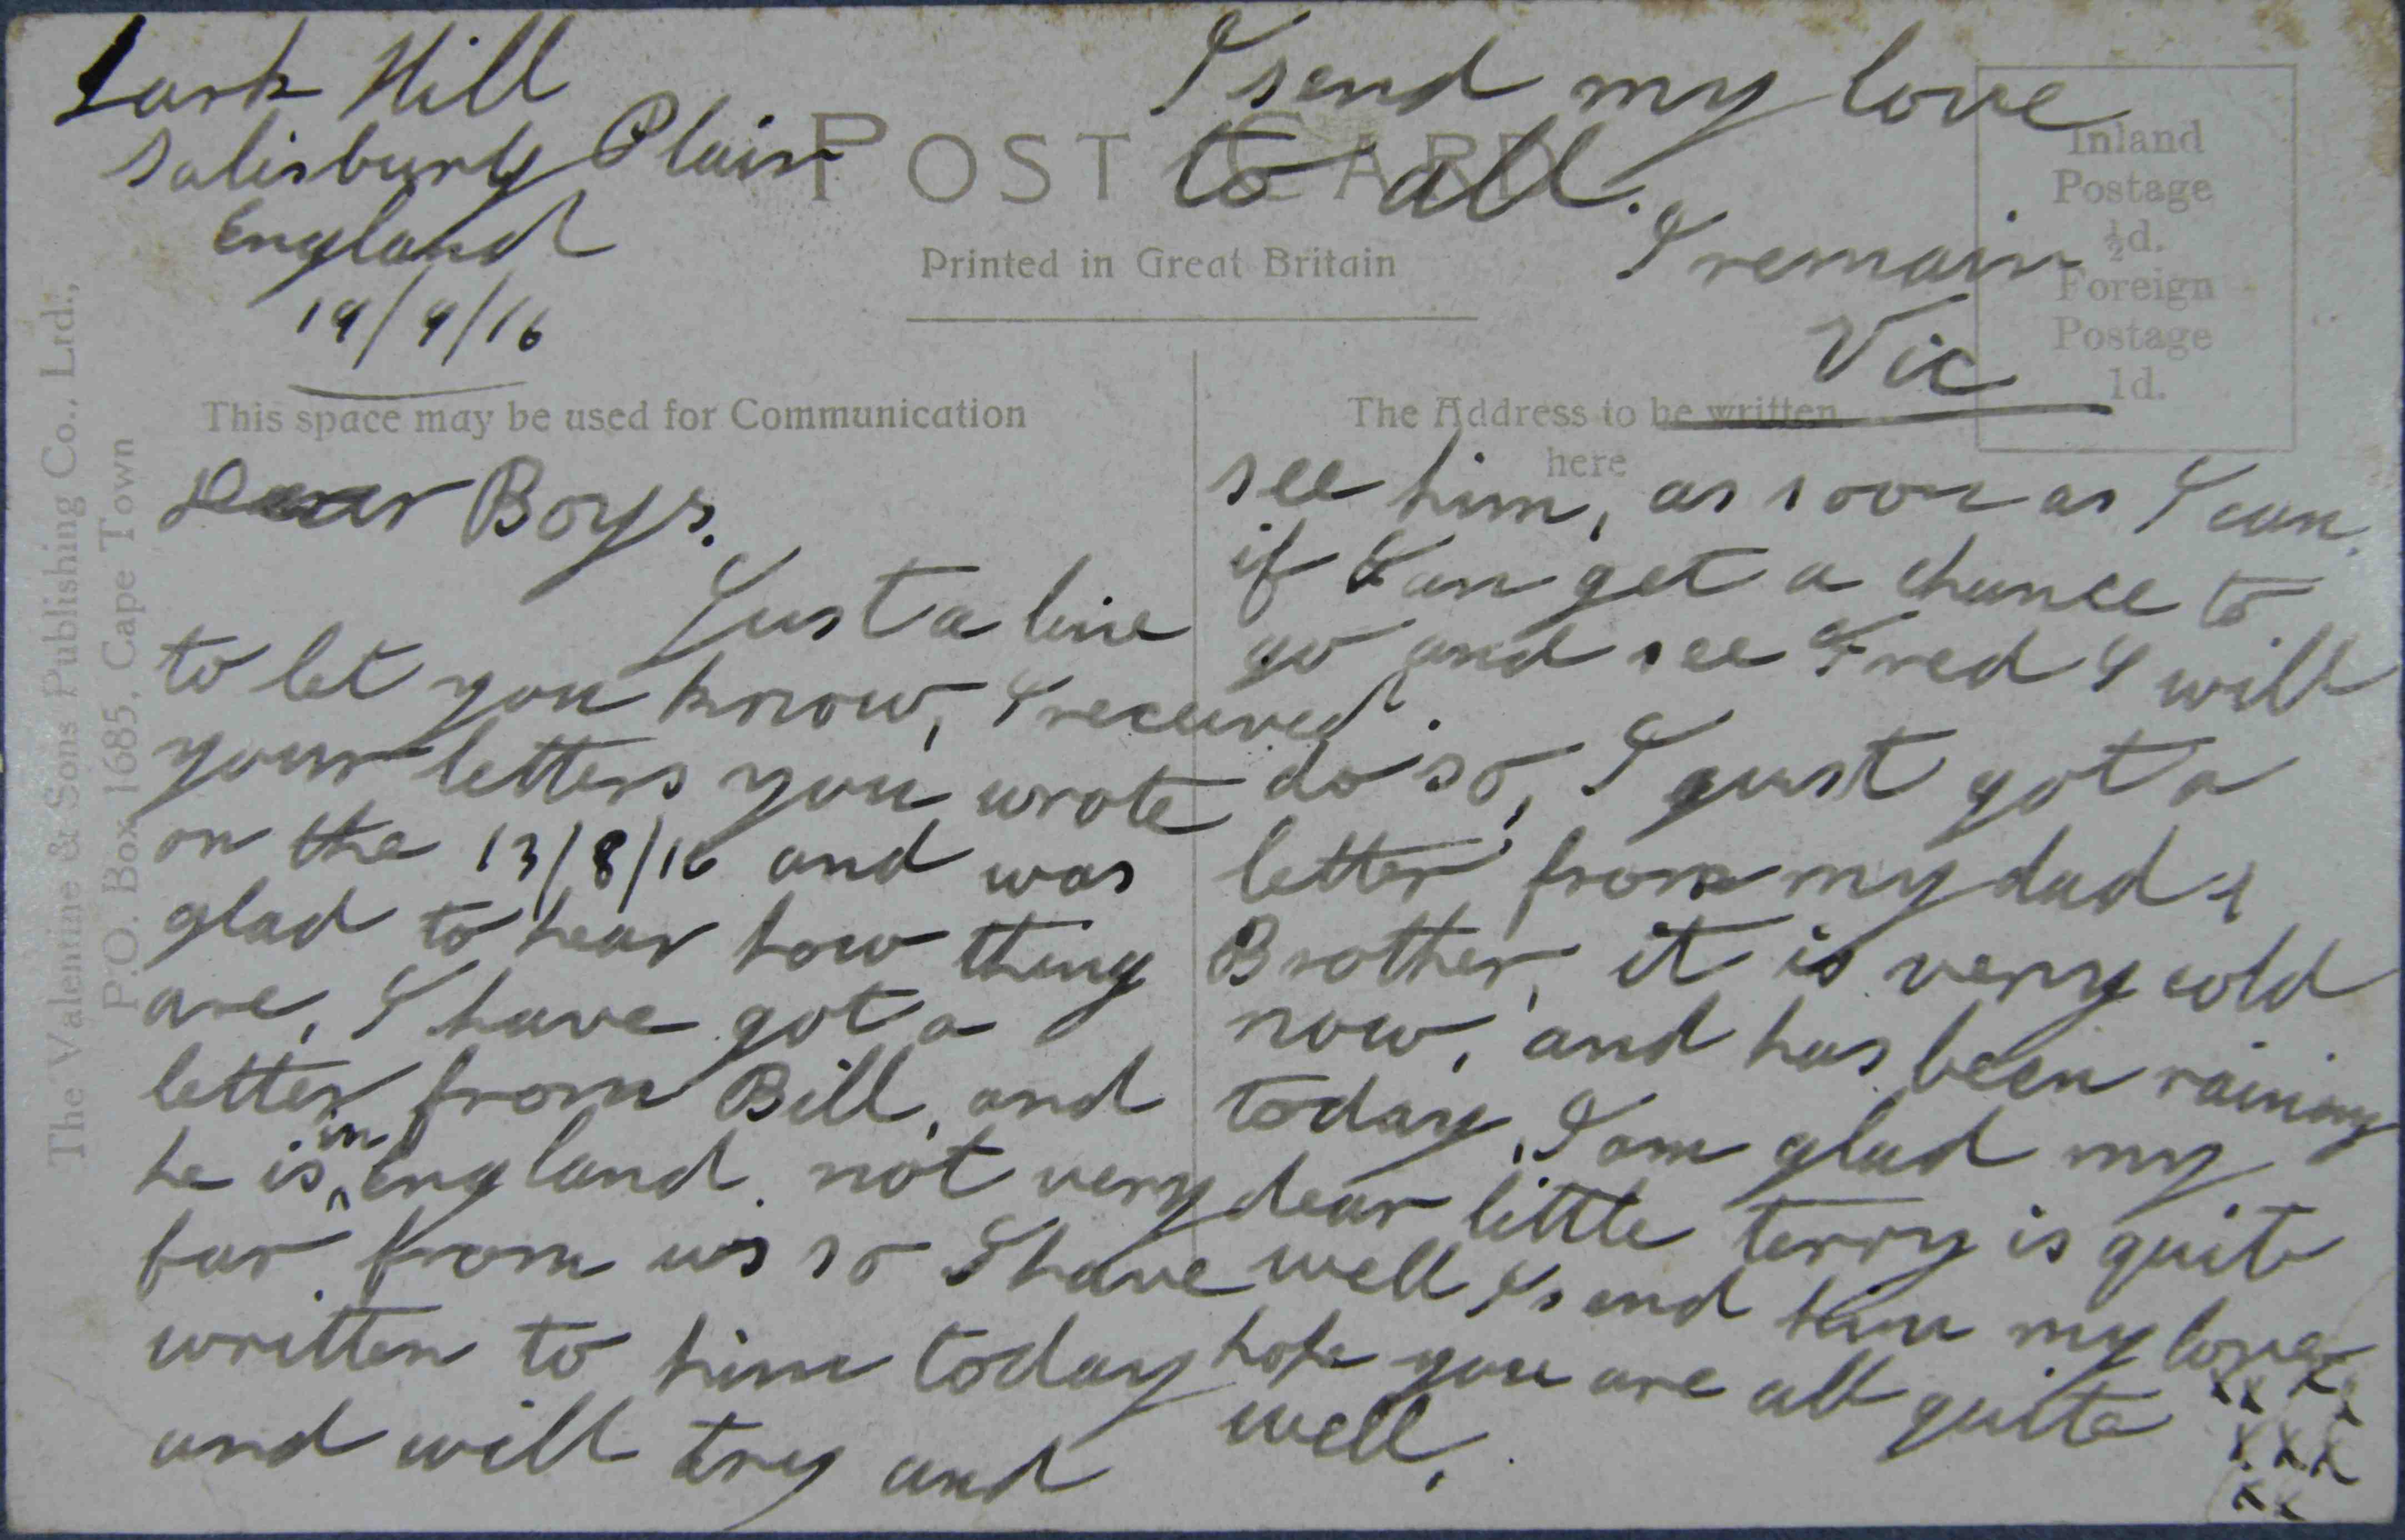 Lark Hill
Salisbury Plain
England
19/9/16
POST CARD
Printed in Great Britain
This space may be used for Communication
The Address to be written
here
Inland
Postage
½d.
Foreign
Postage
1d.
The Valentine & Sons Publishing Co., Ltd.,
P.O. Box 1685, Cape Town
Dear Boys.
Just a line
to let you know, I received
your letters you wrote
on the 13/8/16 and was
glad to hear how thing
are, I have got a
letter from Bill, and
he is in England. not very
far from us so I have
written to him today
and will try and
see him, as soon as I can.
if I can get a chance to
go and see Fred I will
do so, I just got a
letter from my dad &
Brother, it is very cold
now, and has been raining
today, I am glad my
dear little terry is quite
well I send him my love
hope you are all quite
well.
xx xx
xxx
xx
I send my love
to all.
I remain
Vic